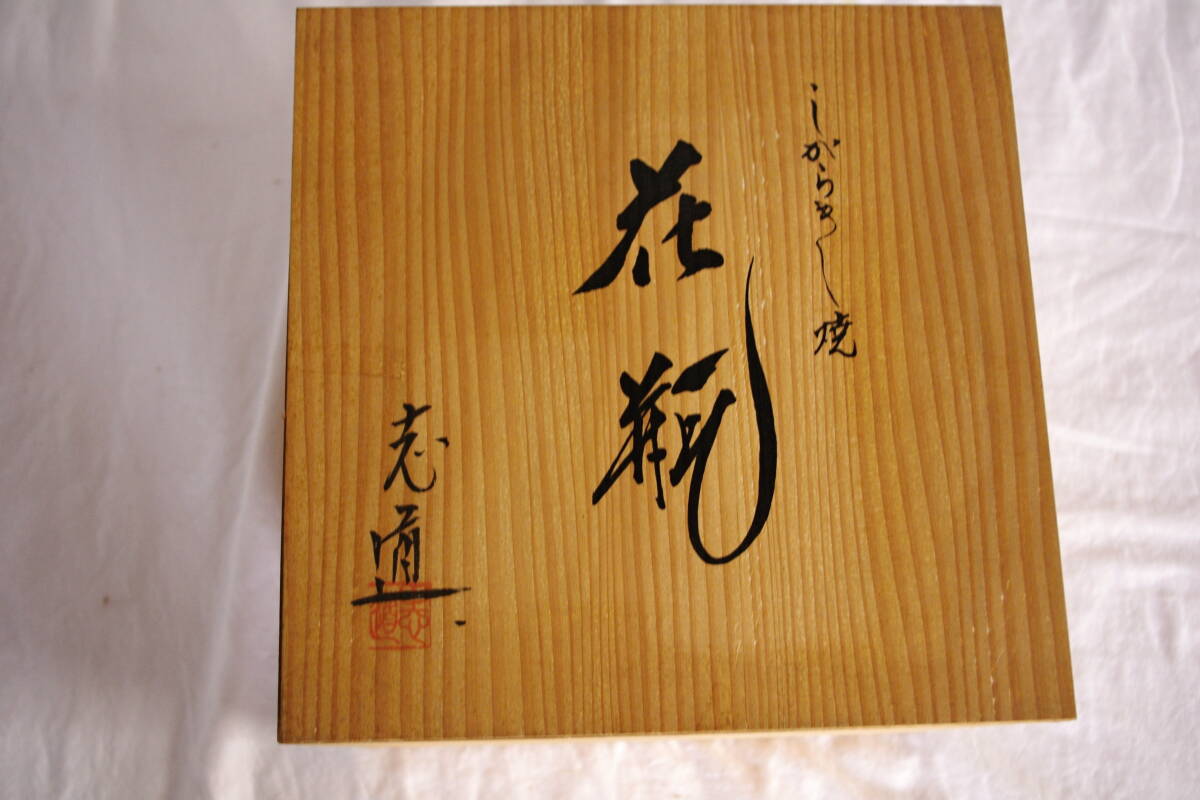 しがらき焼
花瓶
志道